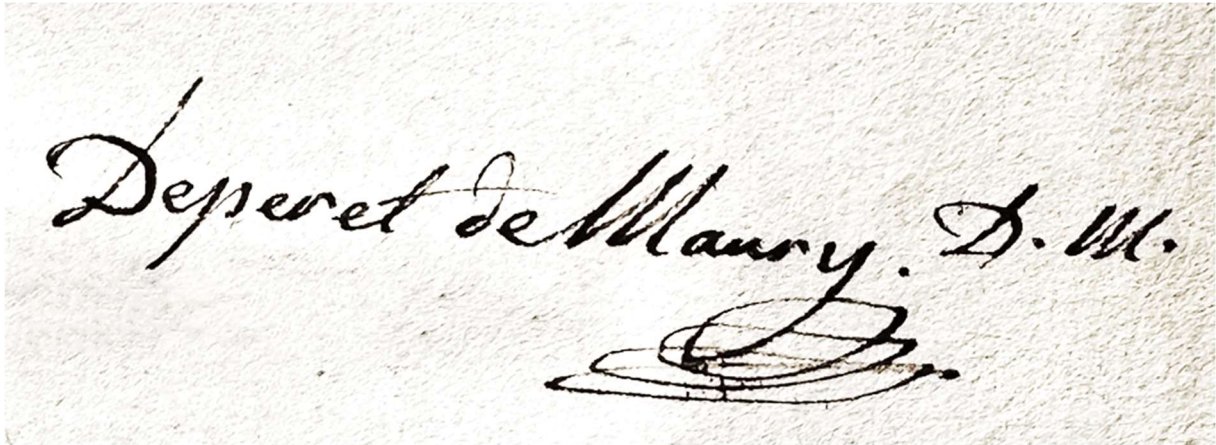 Deperet de Maury. D. M.